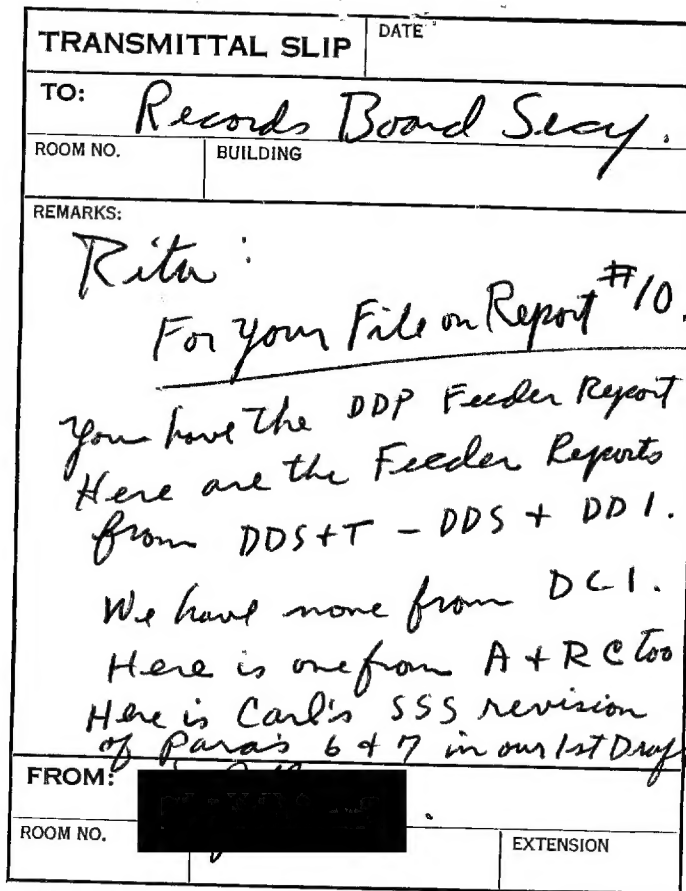 TRANSMITTAL SLIP
DATE
TO: Records Board Secy.
ROOM NO.
BUILDING
REMARKS:
Rita:
For your File on Report #10.
You have the DDP Feeder Report
Here are the Feeder Reports
from DDS+T - DDS + DDI.
We have none from DCI.
Here is one from A+RC too
Here is Carl's SSS revision
of Para's 6 & 7 in our 1st Draf
FROM:
ROOM NO.
EXTENSION